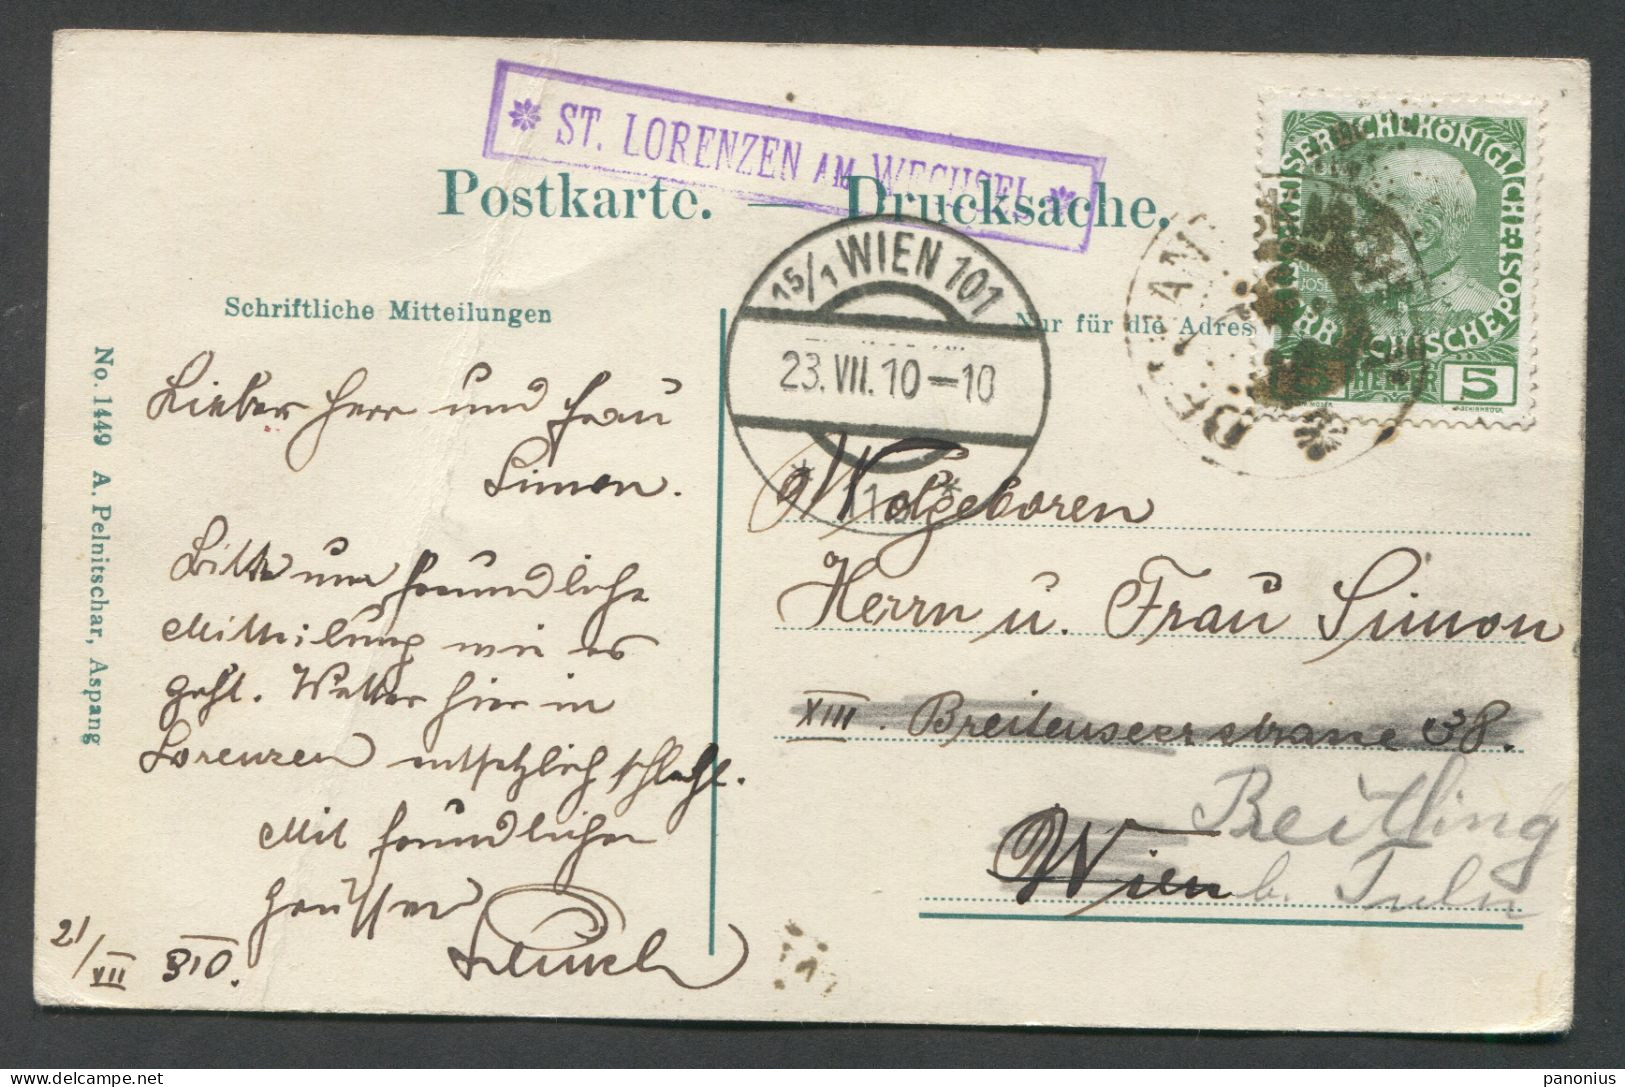 * ST. LORENZEN AM WECHSEL *
Postkarte. — Drucksache.
KAISERLICHE KÖNIGLICHE ÖSTERREICHISCHE POST
5 HELLER 5
15/1 WIEN 101
23. VII. 10-10
* 11a *
Schriftliche Mitteilungen
Nur für die Adres
No. 1449 A. Pelnitschar, Aspang
Lieber Herr und Frau
Simon.
Bitte um freundliche
Mitteilung wie es
geht. Wetter hier in
Lorenzen entsetzlich schlecht.
Mit freundlichen
Grüssen
21/VII 910.
Wolgeboren
Herrn u. Frau Simon
XIII. Breitenseerstrasse 38.
Wien
Breitling
b. Tuln
panonius